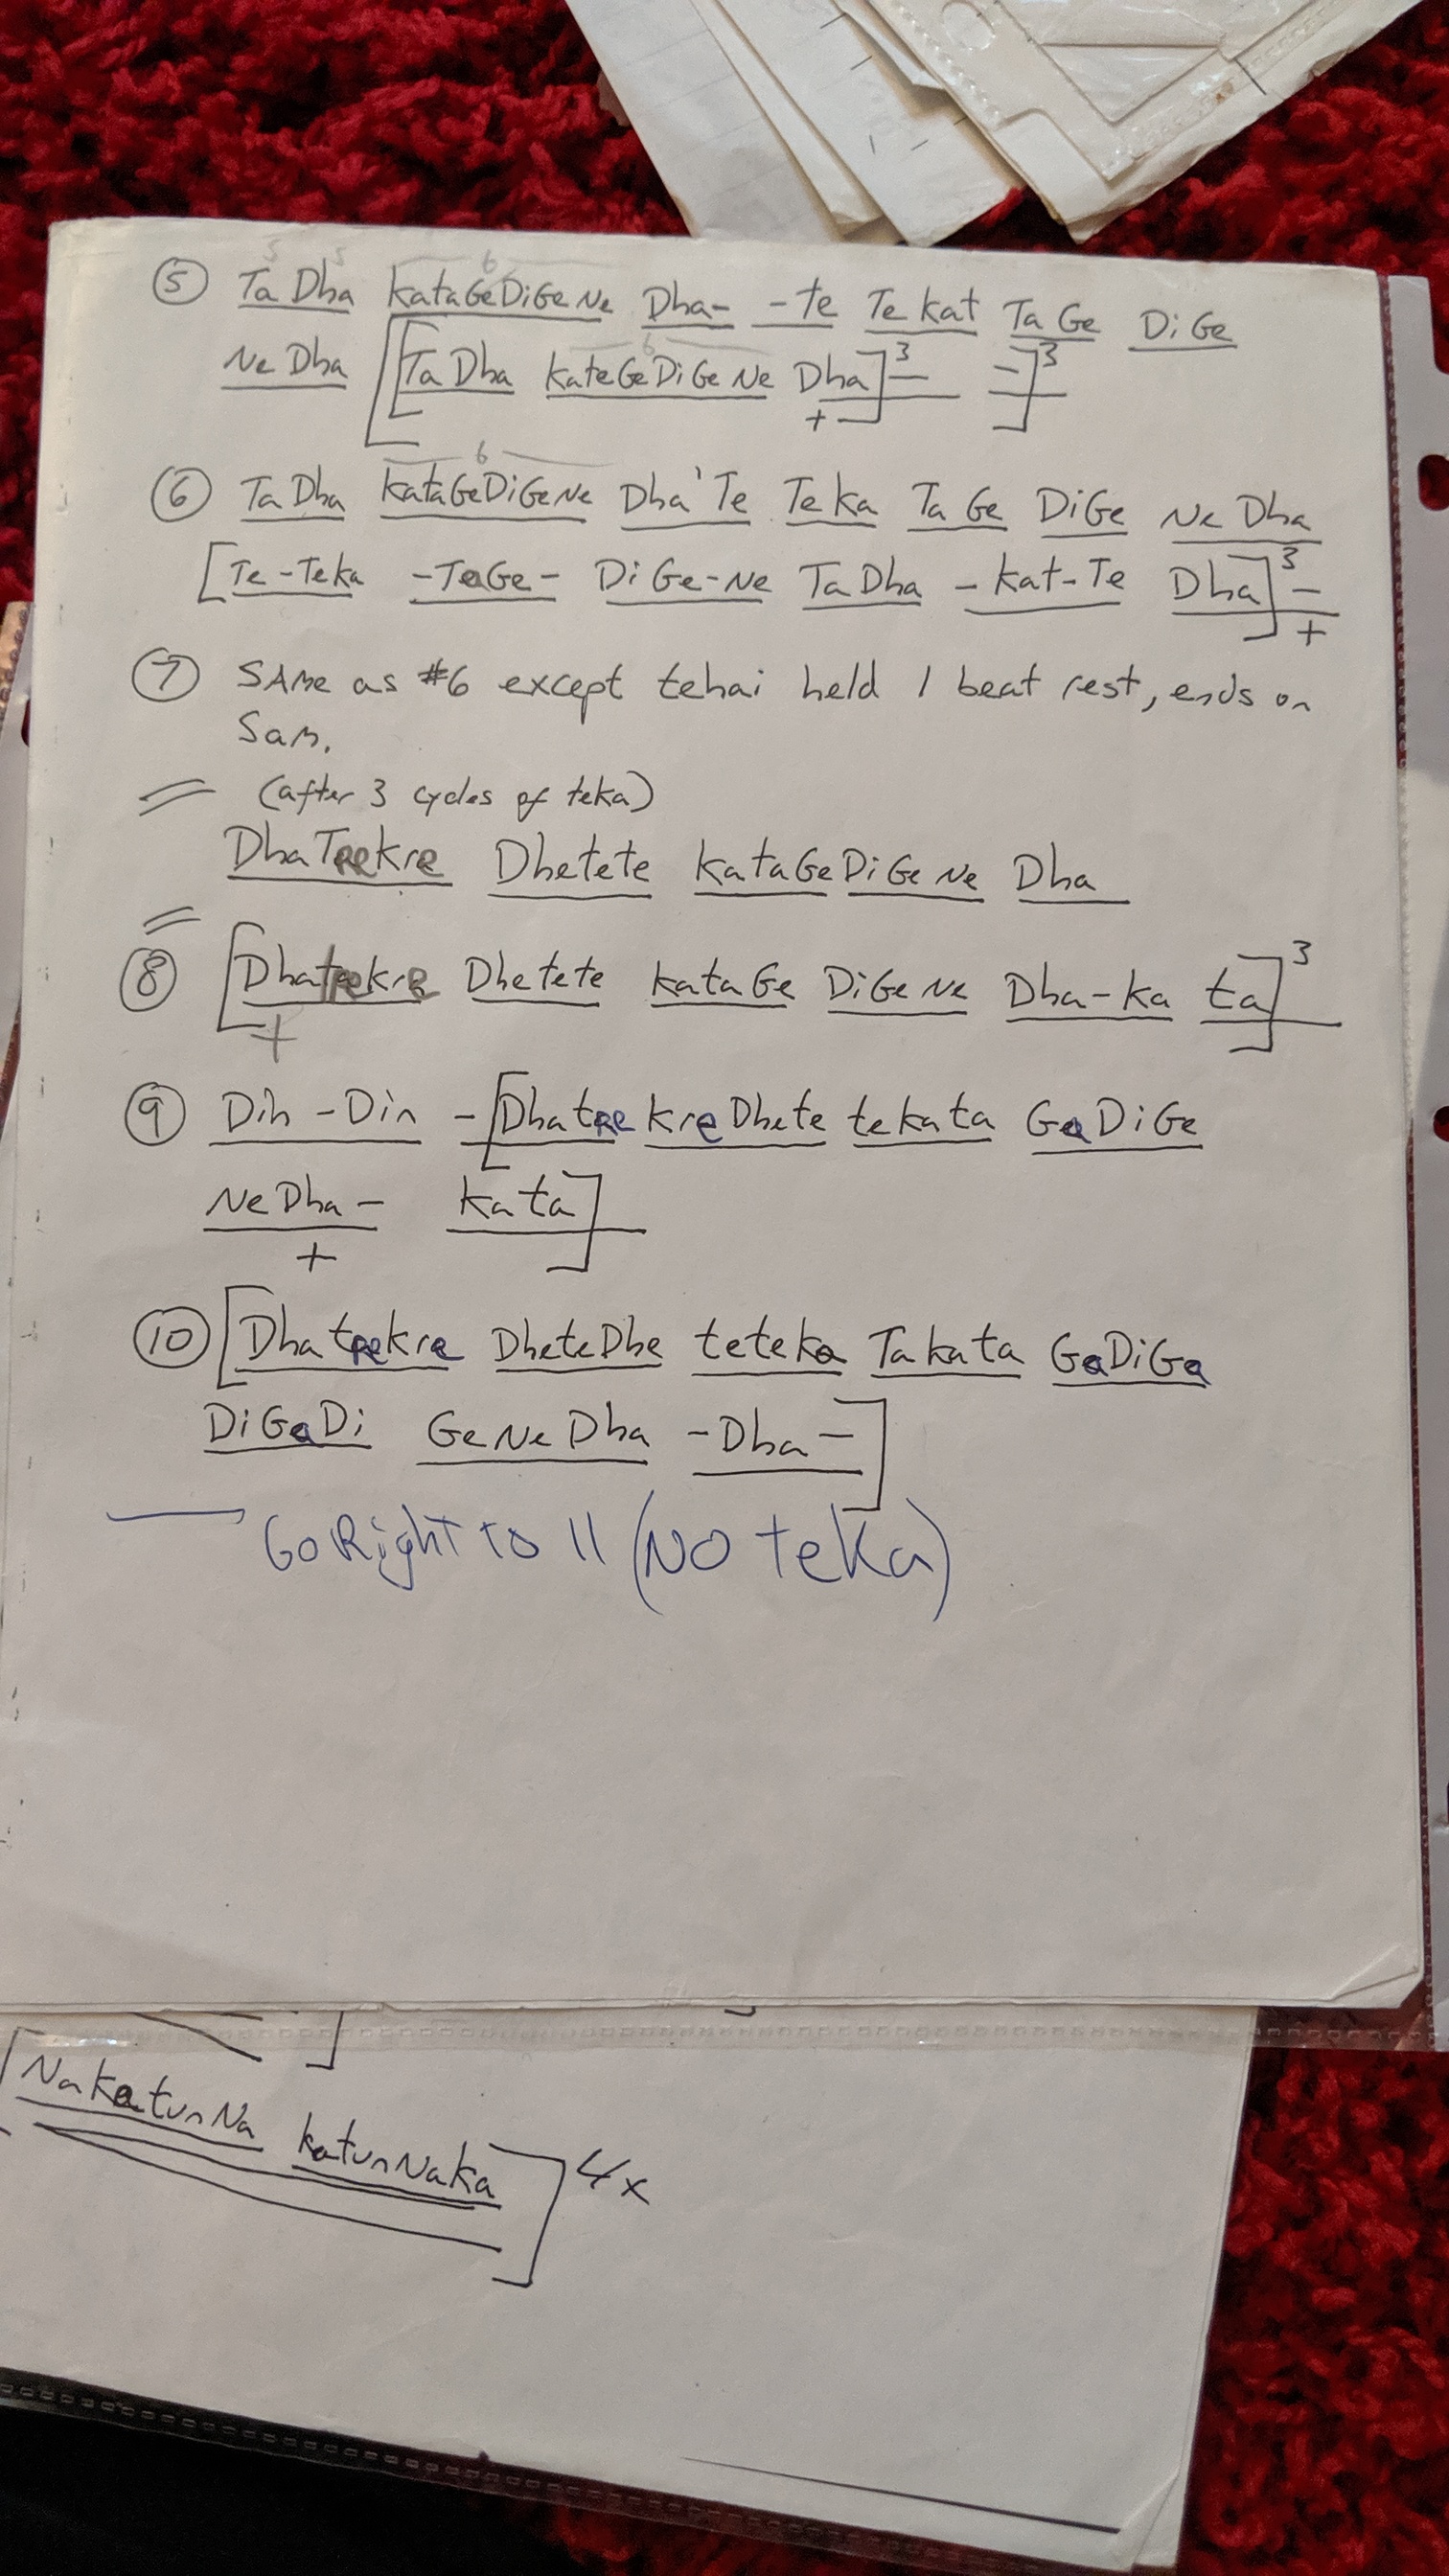 5 5 6
⑤ Ta Dha kataGeDiGeNe Dha- -te Te kat Ta Ge DiGe
6
Ne Dha [[Ta Dha kateGeDiGeNe Dha]³— -]³
+
6
⑥ Ta Dha kataGeDiGeNe Dha'Te Teka Ta Ge DiGe Ne Dha
[Te-Teka -TaGe- DiGe-Ne TaDha -kat-Te Dha]³-
+
⑦ SAME as #6 except tehai held 1 beat rest, ends on
Sam.
= (after 3 cycles of teka)
DhaTrekre Dhetete kataGeDiGeNe Dha
=
⑧ [Dhatrekre Dhetete kataGe DiGeNe Dha-ka ta]³
+
⑨ Din -Din -[Dhatre kreDhete tekata GeDiGe
NeDha- kata]
+
⑩ [Dhatrekre DheteDhe teteka Takata GeDiGe
DiGeDi GeNeDha -Dha-]
— Go Right to 11 (NO teka)
[NakatunNa katunNaka] 4x